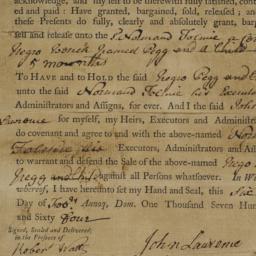 acknowledge, and my self to be therewith fully satisfied, content-
ed and paid: Have granted, bargained, sold, released; and
these Presents do fully, clearly and absolutely grant, bar-
sell and release unto the
Negro named Pegg and a Child
5 months
To HAVE and to HOLD the said Negro Pegg and C
unto the said Executors
Administrators and Assigns, for ever. And I the said John
Lawrence for myself, my Heirs, Executors and Administrat
do covenant and agree to and with the above-named
his Executors, Administrators and Ass
to warrant and defend the Sale of the above-named Negro
Pegg and Child against all Persons whatsoever. In W
whereof, I have hereunto set my Hand and Seal, this
Day of Annoq, Dom. One Thousand Seven Hun
and Sixty Four
Signed, Sealed and Delivered;
in the Presence of
John Lawrence